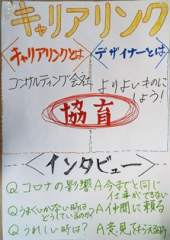 キャリアリンク
キャリアリンクとは
デザイナーとは
コンサルティング会社
よりよいものに
しよう!
協育
インタビュー
Q コロナの影響 A 今までと同じ
仕事ができない
Q うまくいかない時は、
どうしているのか? A 仲間に頼る
Q うれしい時は? A 意見